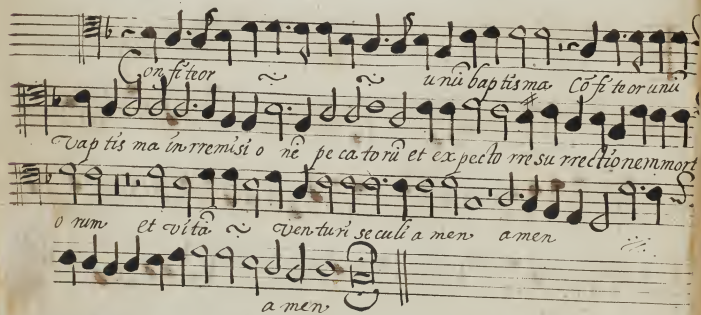 Confiteor ~ ~ unū baptisma Cō fi teor unū
Vap tis ma in rremisi o nē pe ca torū et ex pecto rresu rrectionem mort
o rum et vitā ~ venturi seculi a men amen
a men